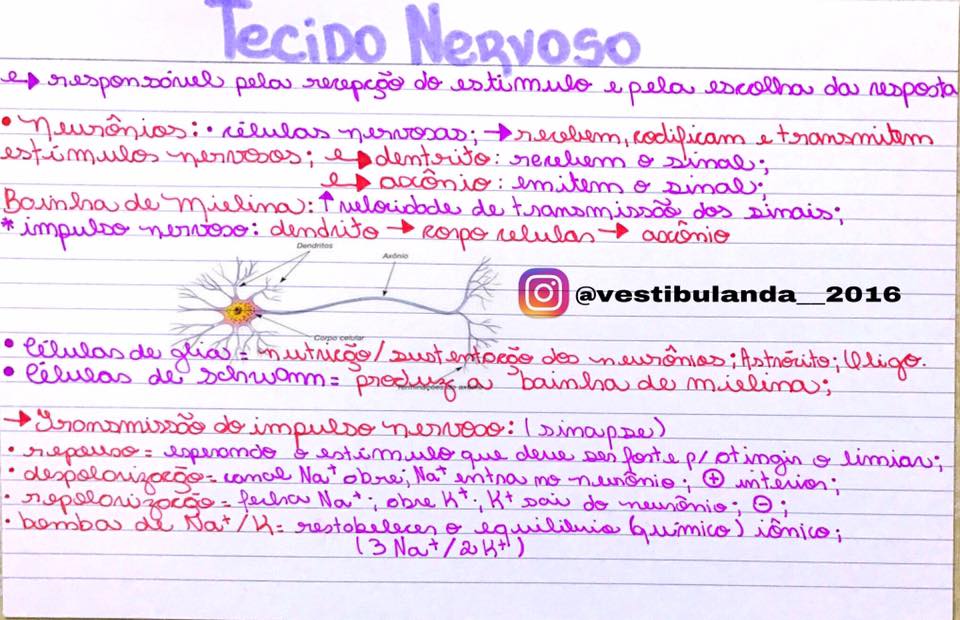 Tecido Nervoso
↳ responsável pela recepção do estimulo e pela escolha da resposta
• Neurônios: • células nervosas; → recebem, codificam e transmitem
estímulos nervosos; ↳ dentrito: recebem o sinal;
↳ axônio: emitem o sinal;
Bainha de Mielina: ↑ velocidade de transmissão dos sinais;
* impulso nervoso: dendrito → corpo celular → axônio
Dendritos
Axônio
@vestibulanda__2016
Corpo celular
• Células de glia = nutrição/sustentação dos neurônios; Astrócito; Oligo.
• Células de schwann = produz a bainha de mielina;
Terminações do axônio
→ Transmissão do impulso nervoso: (sinapse)
• repouso = esperando o estímulo que deve ser forte p/ atingir o limiar;
• despolarização = canal Na⁺ abre; Na⁺ entra no neurônio; ⊕ interior;
• repolarização = fecha Na⁺; abre K⁺; K⁺ sai do neurônio; ⊖;
• bomba de Na⁺/K = restabelecer o equilíbrio (químico) iônico;
(3 Na⁺/2 K⁺)